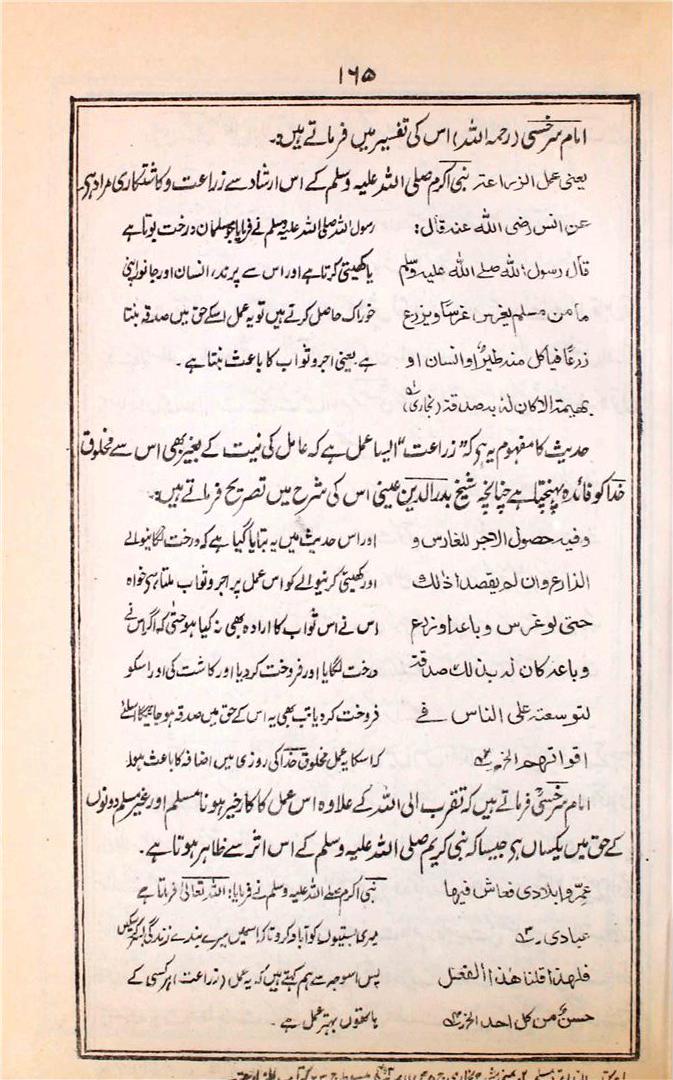 ۱۶۵
امام سرخسی (رحمہ اللہ) اس کی تفسیر میں فرماتے ہیں:۔
یعنی عمل الزراعتہ نبی اکرم صلی اللہ علیہ وسلم کے اس ارشاد سے زراعت وکاشتکاری مراد ہی۔
عن انس رضی اللہ عنہ قال:
قال رسول اللہ صلے اللہ علیہ وسلم
مامن مسلم یغرس غرسًا ویزرع
زرعًا فیاکل منہ طیرٌ اوانسان او
بھیمۃ الاکان لہٗ بہ صدقۃ (بخاری)
رسول اللہ صلی اللہ علیہ وسلم نے فرمایا جو مسلمان درخت بوتا ہے
یا کھیتی کرتا ہے اور اس سے پرند، انسان اور جانور اپنی
خوراک حاصل کرتے ہیں تو یہ عمل اسکے حق میں صدقہ بنتا
ہے یعنی اجر و ثواب کا باعث بنتا ہے۔
حدیث کا مفہوم یہ ہی کہ "زراعت" ایسا عمل ہے کہ عامل کی نیت کے بغیر بھی اس سے مخلوق
خدا کو فائدہ پہنچتا ہے چنانچہ شیخ بدرالدین عینی اس کی شرح میں تصریح فرماتے ہیں:۔
وفیہ حصول الاجر للغارس و
الزارع وان لم یقصدا ذلک
حتی لوغرس وباعہ اوزرع
وباعہ کان لہ بذلک صدقۃ
لتوسعتہ علی الناس فے
اقواتھم الخ۔
اور اس حدیث میں یہ بتایا گیا ہے کہ درخت لگانیوالے
اور کھیتی کرنیوالے کو اس عمل پر اجر و ثواب ملتا ہی خواہ
اس نے اس ثواب کا ارادہ بھی نہ کیا ہو حتٰی کہ اگر اس نے
درخت لگایا اور فروخت کردیا اور کاشت کی اور اسکو
فروخت کردیا تب بھی یہ اس کے حق میں صدقہ ہوجائیگا اسلئے
کہ اسکا یہ عمل مخلوق خدا کی روزی میں اضافہ کا باعث ہوا۔
امام سرخسیؒ فرماتے ہیں کہ تقرب الی اللہ کے علاوہ اس عمل کا کارِ خیر ہونا مسلم اور غیر مسلم دونوں
کے حق میں یکساں ہی جیسا کہ نبی کریم صلی اللہ علیہ وسلم کے اس اثر سے ظاہر ہوتا ہے۔
عمّر وابلادی فعاش فیھا
عبادی۔
فلھذا قلنا ھذا الفعل
حسن من کل احد الخ
نبی اکرم صلے اللہ علیہ وسلم نے فرمایا: اللہ تعالیٰ فرماتا ہے
میری بستیوں کو آباد کرو تاکہ اسمیں میرے بندے زندگی بسر کرسکیں
پس اسوجہ سے ہم کہتے ہیں کہ یہ عمل (زراعت) ہر کسی کے
ہاتھوں بہتر عمل ہے۔